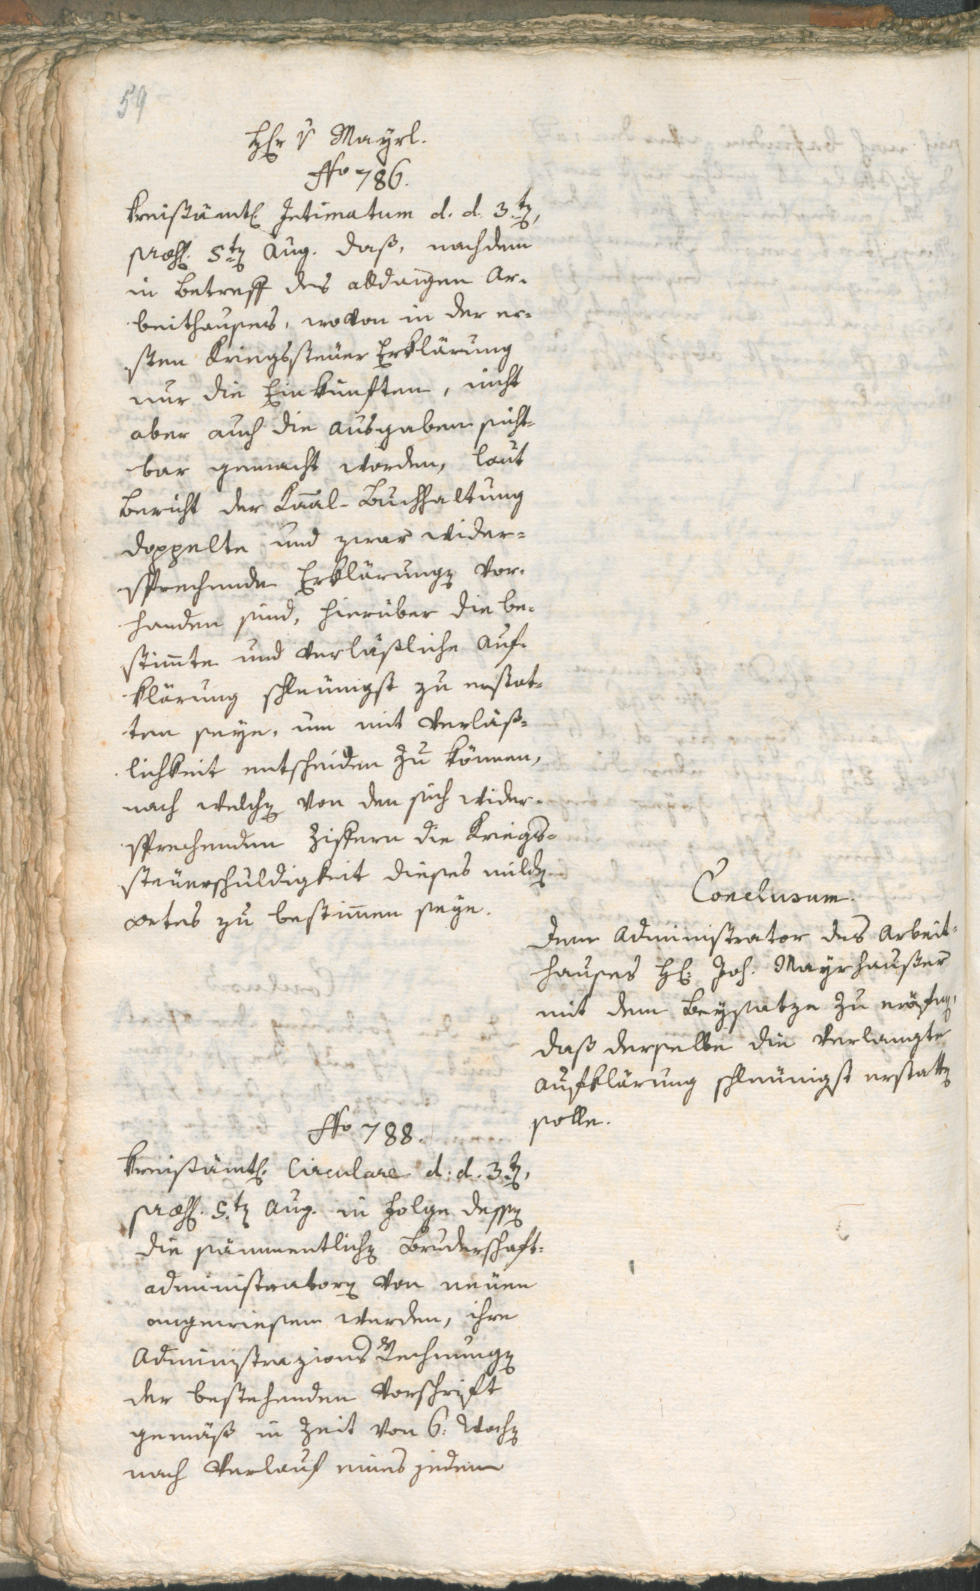 59
H: v Mayrl.
No 786.
Kreisämtl. Intimatum d. d. 3.t,
præs. 5t Aug. daß, nachdem
in Betreff des alldaigen Ar-
beithauses, wovon in der er-
sten Kriegssteüer Erklärung
nur die Einkünften, nicht
aber auch die Ausgaben sicht-
bar gemacht worden, laut
Bericht der Kaal-Buchhaltung
doppelte und zwar wider-
sprechende Erklärungen vor-
handen sind, hierüber die be-
stimte und verläßliche Auf-
klärung schleünigst zu erstat-
ten seye, um mit Verläß-
lichkeit entscheiden zu können,
nach welchen von den sich wider-
sprechenden Ziffern die Kriegs-
steüerschuldigkeit dieses milden
Ortes zu bestimen seye.
Conclusum.
Dem Administrator des Arbeit-
hauses H: Joh. Mayrhauser
mit dem Beysatze zu eröfnen,
daß derselbe die verlangte
Aufklärung schleünigst erstatten
solle.
No 788.
Kreisämtl. Circulare d: d. 3.t,
præs. 5.t Aug. in Folge dessen
die sämmentlichen Bruderschaft-
administratoren von neüen
angewiesen werden, ihre
Administrazions Rechnungen
der bestehenden Vorschrift
gemäß in Zeit von 6: Wochen
nach Verlauf eines jeden